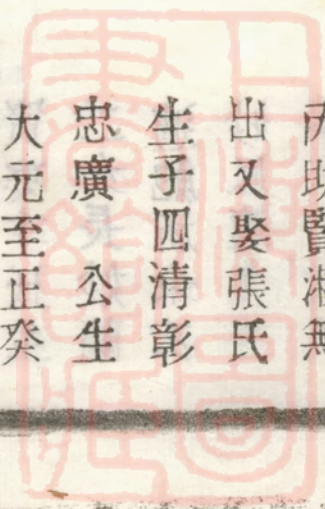 內助賢淑無
出又娶張氏
生子四清彰
忠廣　公生
大元至正癸